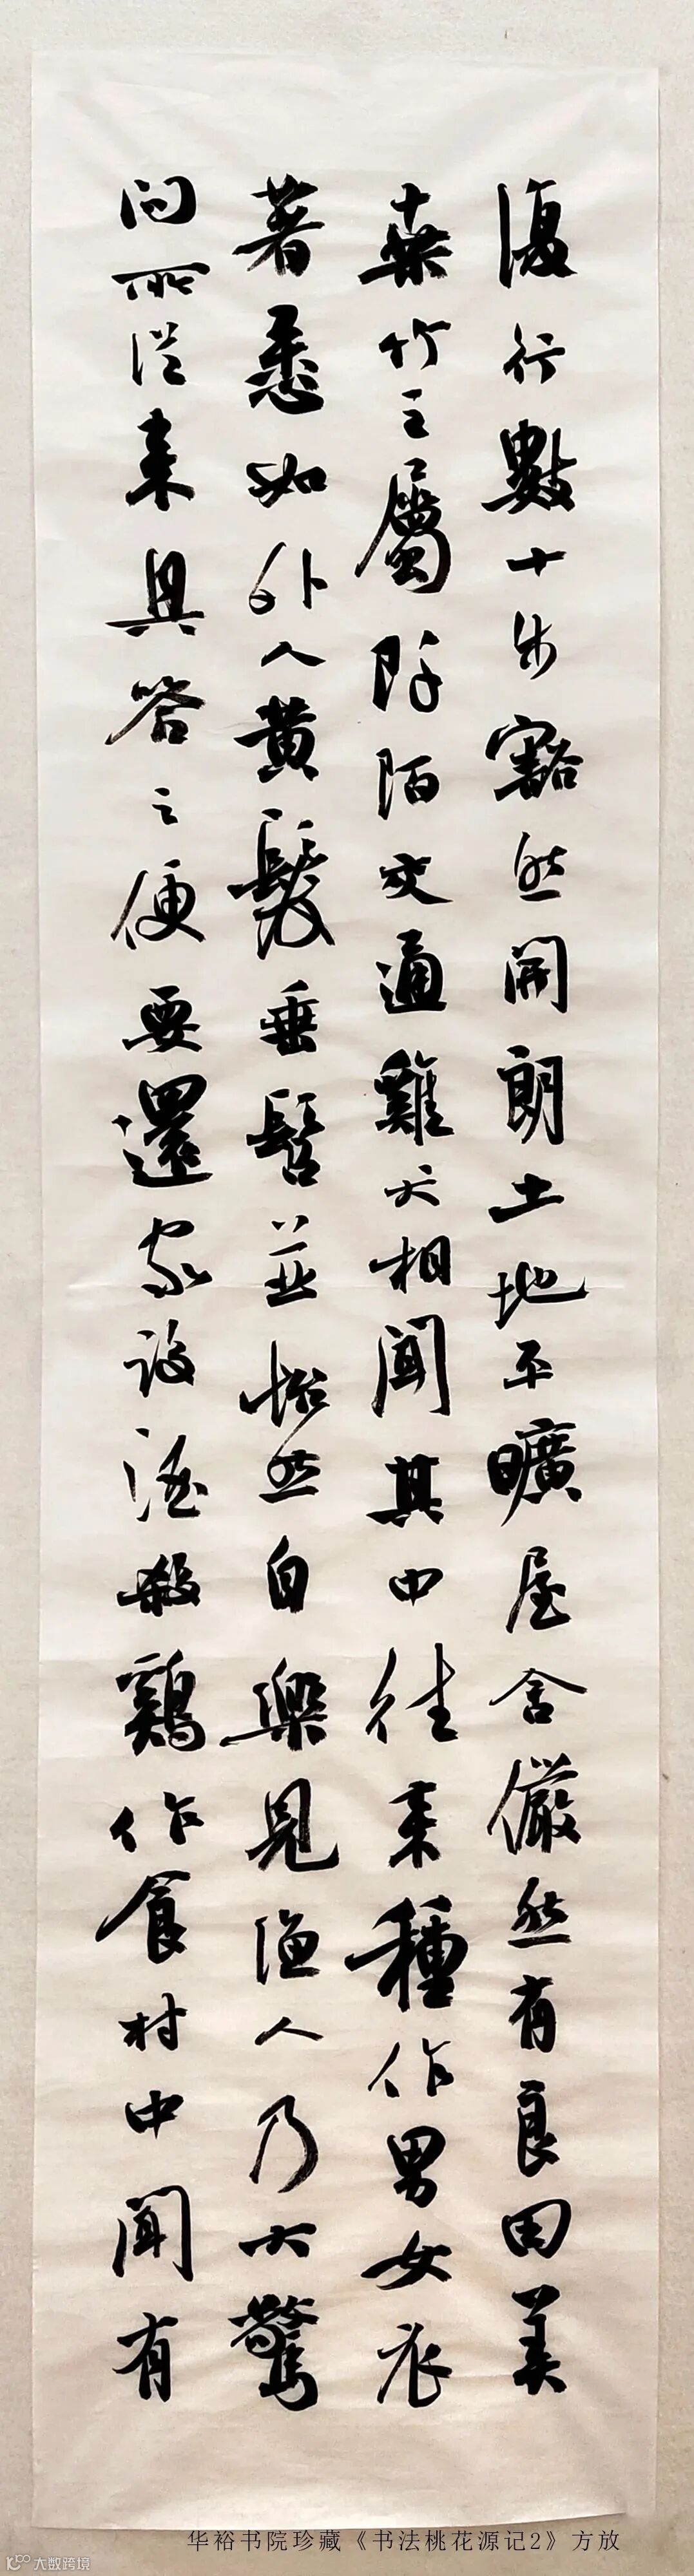 復行數十步豁然開朗土地平曠屋舍儼然有良田美
桑竹之屬阡陌交通雞犬相聞其中往來種作男女衣
著悉如外人黃髮垂髫並怡然自樂見漁人乃大驚
問所從來具答之便要還家設酒殺鷄作食村中聞有
华裕书院珍藏《书法桃花源记2》方放
大数跨境